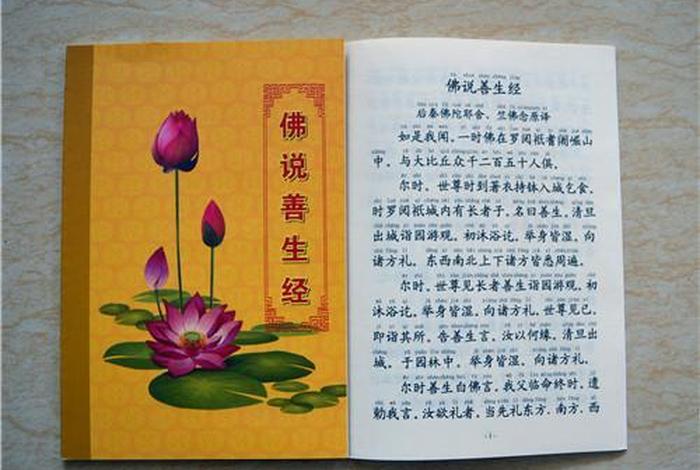 佛说善生经
佛说善生经
后秦佛陀耶舍、竺佛念原译
如是我闻。一时佛在罗阅祇耆阇崛山
中。与大比丘众千二百五十人俱。
尔时。世尊时到著衣持钵入城乞食。
时罗阅祇城内有长者子。名曰善生。清旦
出城诣园游观。初沐浴讫。举身皆湿。向
诸方礼。东西南北上下诸方皆悉周遍。
尔时。世尊见长者善生诣园游观。初
沐浴讫。举身皆湿。向诸方礼。世尊见已。
即诣其所。告善生言。汝以何缘。清旦出
城。于园林中。举身皆湿。向诸方礼。
尔时善生白佛言。我父临命终时。遗
勅我言。汝欲礼者。当先礼东方。南方。西